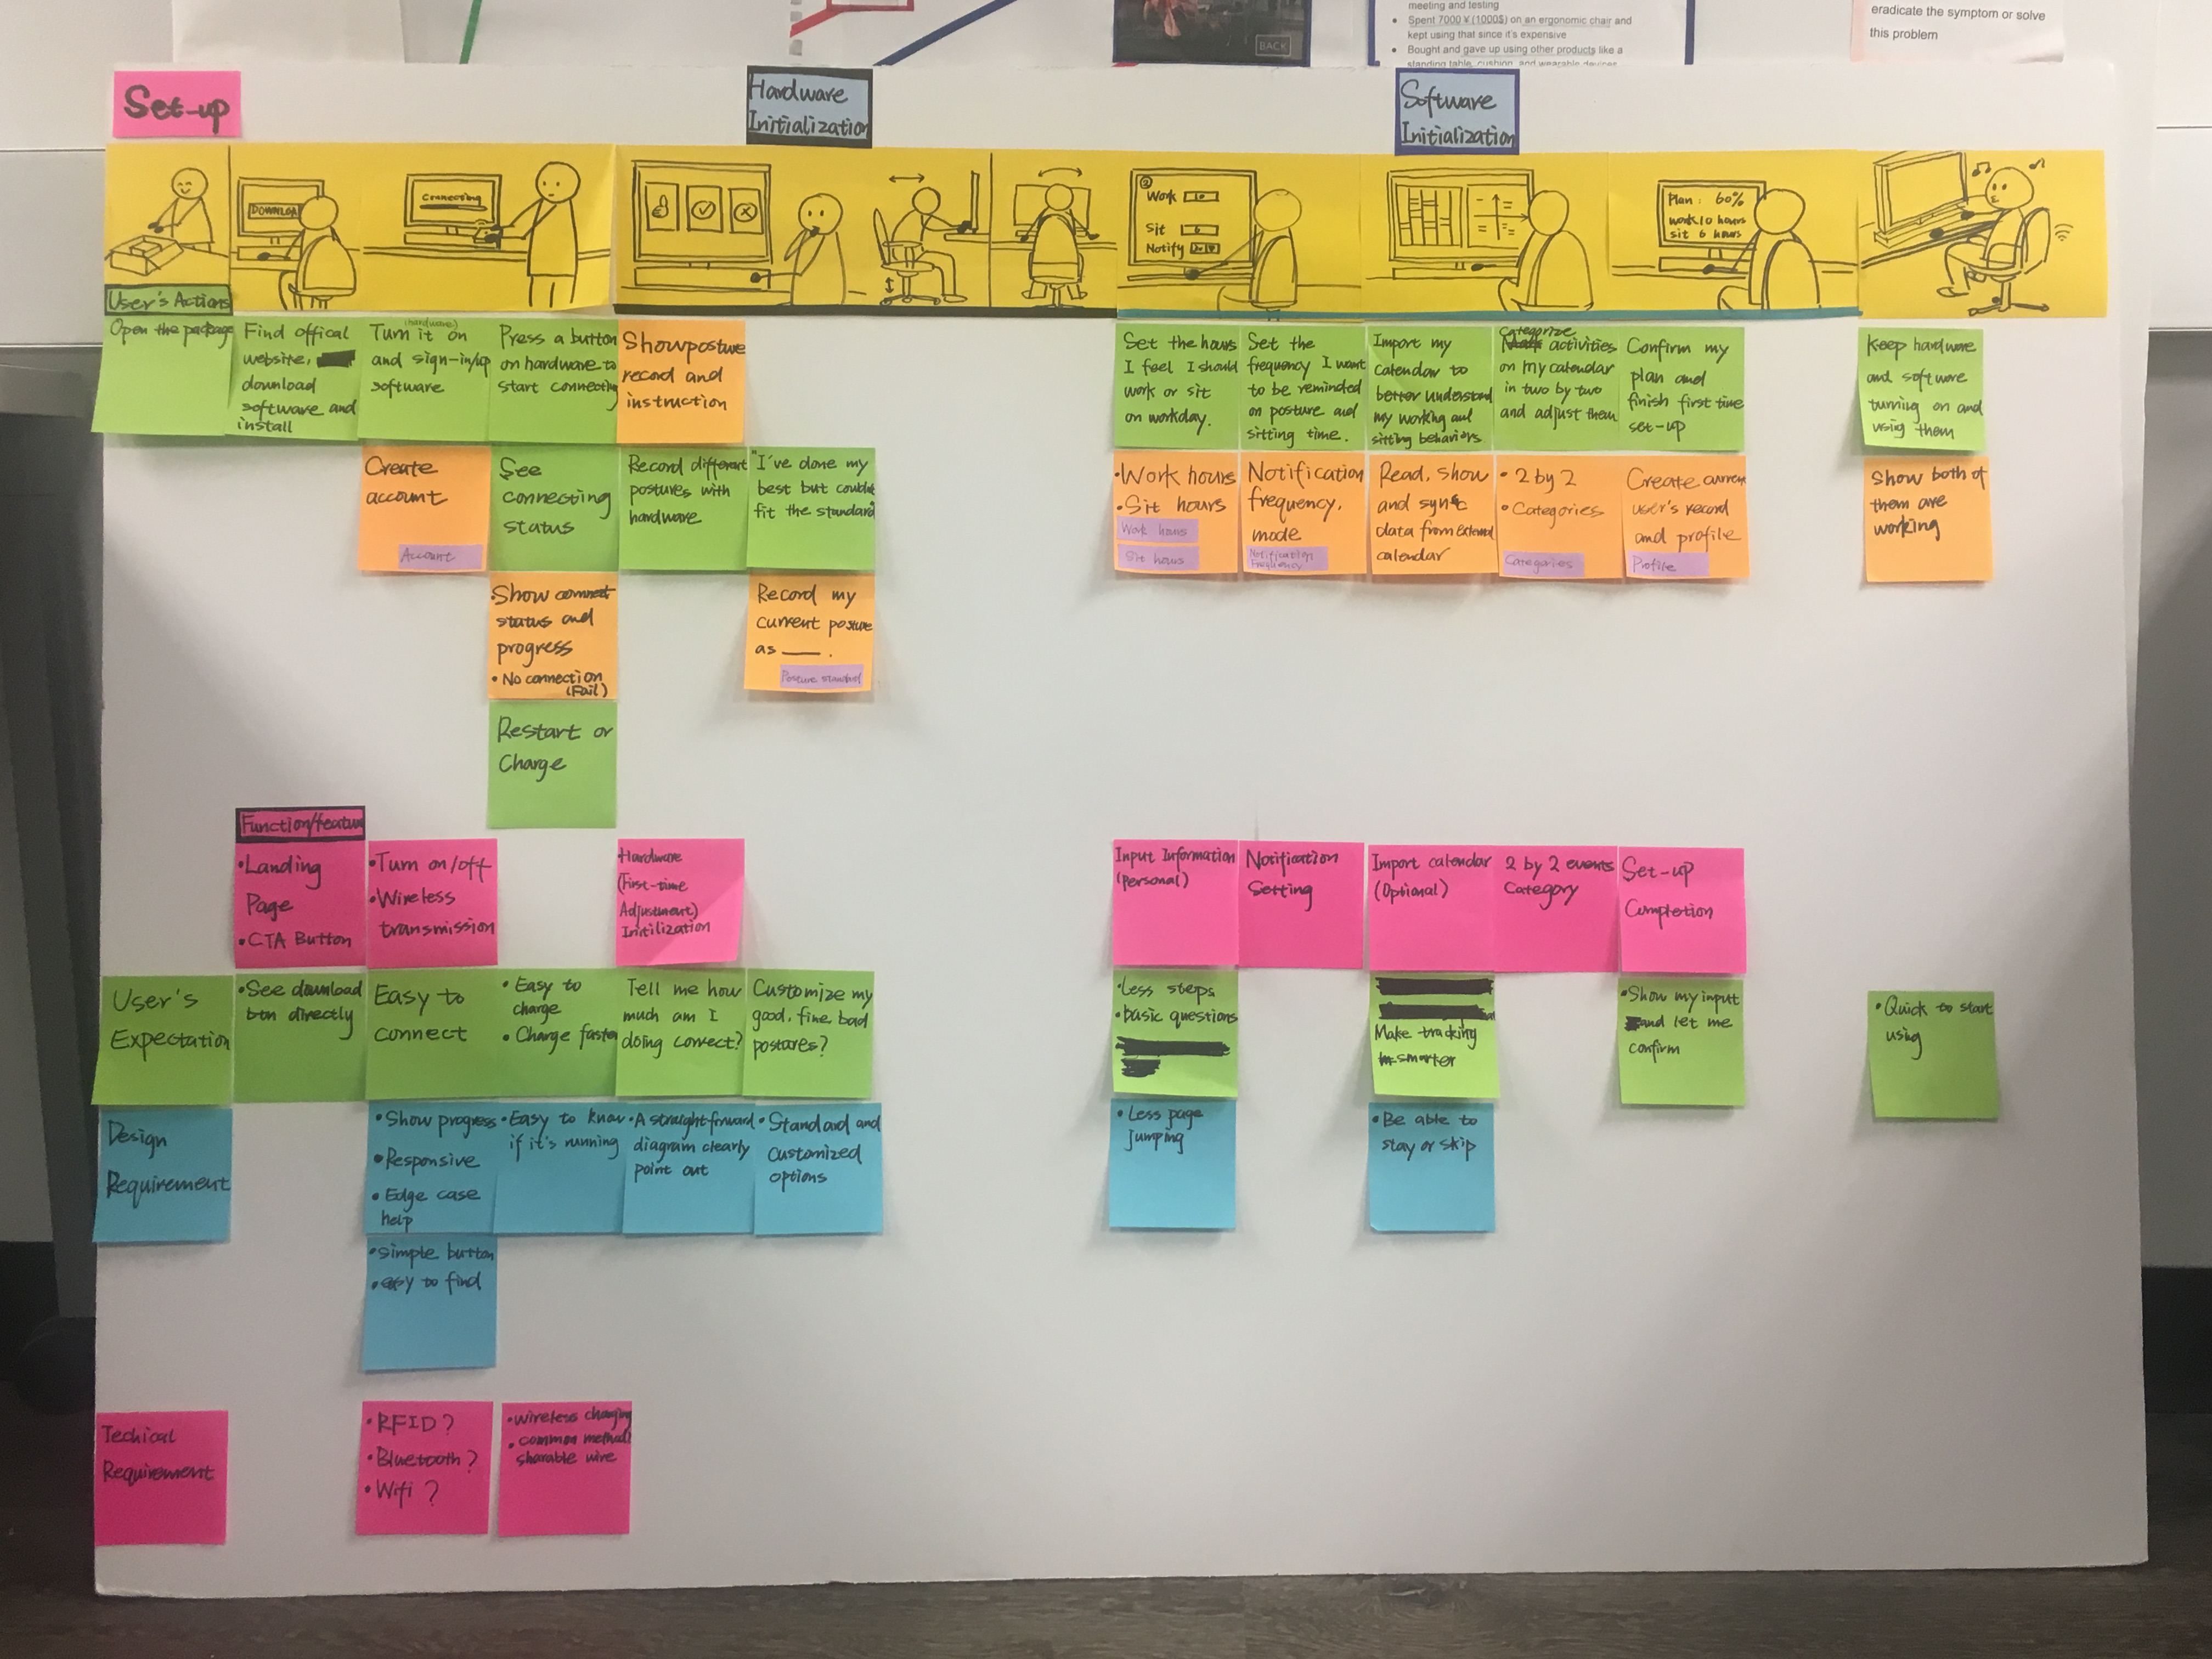 BACK
meeting and testing
• Spent 7000 ¥ (1000$) on an ergonomic chair and
kept using that since it's expensive
• Bought and gave up using other products like a
standing table, cushion, and wearable devices
eradicate the symptom or solve
this problem
Set-up
Hardware
Initialization
Software
Initialization
DOWNLOA
Connecting
②
Work
Sit
Notify
Plan: 60%
work 10 hours
sit 6 hours
User's Actions
Open the package
Find offical
website,
download
software and
install
(hardware)
Turn it on
and sign-in/up
software
Press a button
on hardware to
start connecting
Show posture
record and
instruction
Set the hours
I feel I should
work or sit
on workday.
Set the
frequency I want
to be reminded
on posture and
sitting time.
Import my
calendar to
better understand
my working and
sitting behaviors
Categorize
activities
on my calendar
in two by two
and adjust them
Confirm my
plan and
finish first time
set-up
Keep hardware
and software
turning on and
using them
Create
account
Account
See
connecting
status
Record different
postures with
hardware
"I've done my
best but couldn't
fit the standard
• Work hours
• Sit hours
Work hours
Sit hours
Notification
frequency,
mode
Notification
Frequency
Read, show
and sync
data from external
calendar
• 2 by 2
• Categories
Categories
Create current
user's record
and profile
Profile
Show both of
them are
working
Show connect
status and
progress
• No connection
(Fail)
Record my
current posture
as ___.
Posture standard
Restart or
Charge
Function/feature
• Landing
Page
• CTA Button
• Turn on/off
• Wireless
transmission
Hardware
(First-time
Adjustment)
Initilization
Input Information
(Personal)
Notification
Setting
Import calendar
(Optional)
2 by 2 events
Category
Set-up
Completion
User's
Expectation
• See download
btn directly
Easy to
connect
• Easy to
charge
• Charge faster
Tell me how
much am I
doing correct?
Customize my
good, fine, bad
postures?
• Less steps
• basic questions
Make tracking
smarter
• Show my input
and let me
confirm
• Quick to start
using
Design
Requirement
• Show progress
• Responsive
• Edge case
help
• Easy to know
if it's running
• A straightforward
diagram clearly
point out
• Standard and
customized
options
• Less page
jumping
• Be able to
stay or skip
• simple button
• easy to find
Techical
Requirement
• RFID?
• Bluetooth?
• Wifi?
• wireless charging
• common method
sharable wire